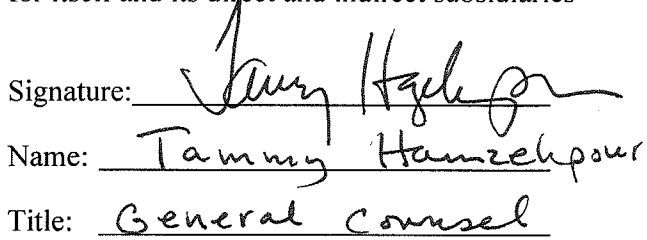 for itself and its direct and indirect subsidiaries
Signature: Tammy Hamzehpour
Name: Tammy Hamzehpour
Title: General Counsel